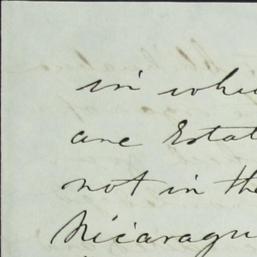 in whi
are Estat
not in the
Nicaragu